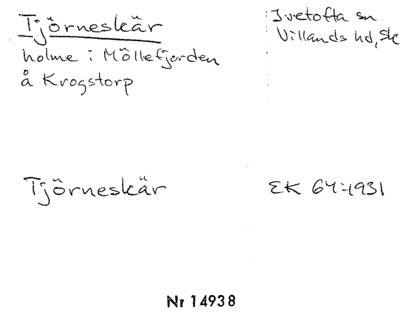 Tjörneskär
holme i Möllefjorden
å Krogstorp
Ivetofta sn
Villands hd, Sk
Tjörneskär
EK 64:1931
Nr 14938